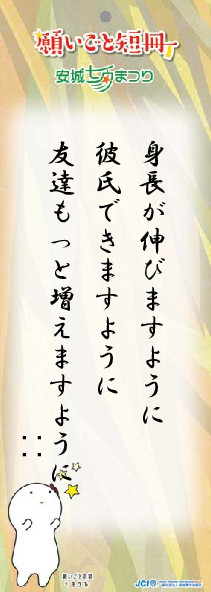 願いごと短冊
安城七夕まつり
身長が伸びますように
彼氏できますように
友達もっと増えますように
：：
願いごと短冊
JCI